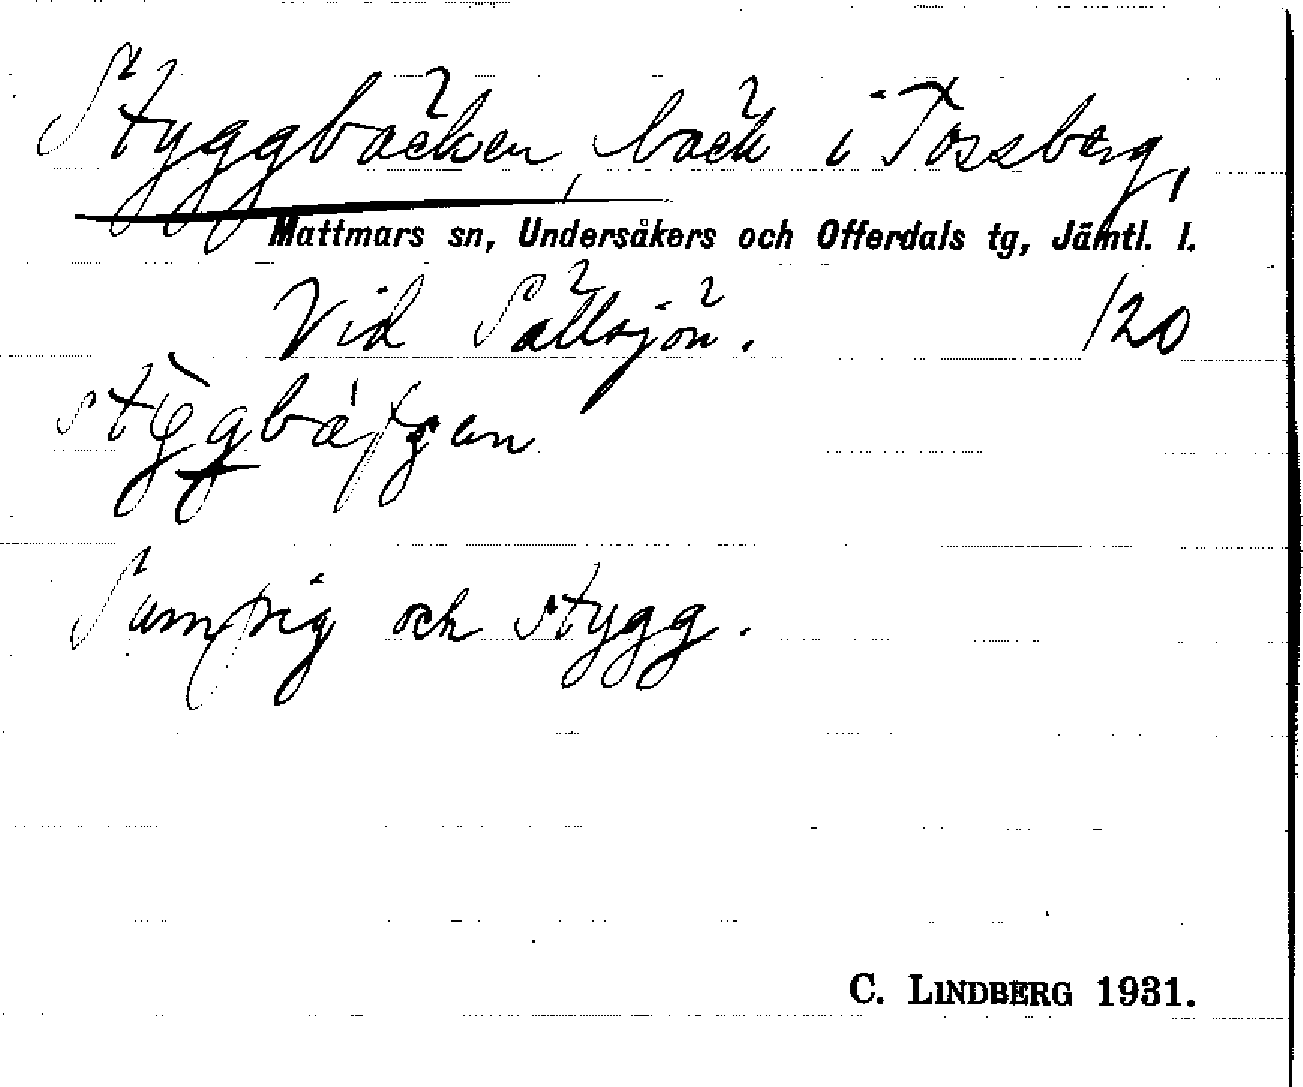 Styggbäcken, bäck i Tossberg,
Mattmars sn, Undersåkers och Offerdals tg, Jämtl. l.
Vid Sällsjön. 120
Sumpig och stygg.
C. LINDBERG 1931.